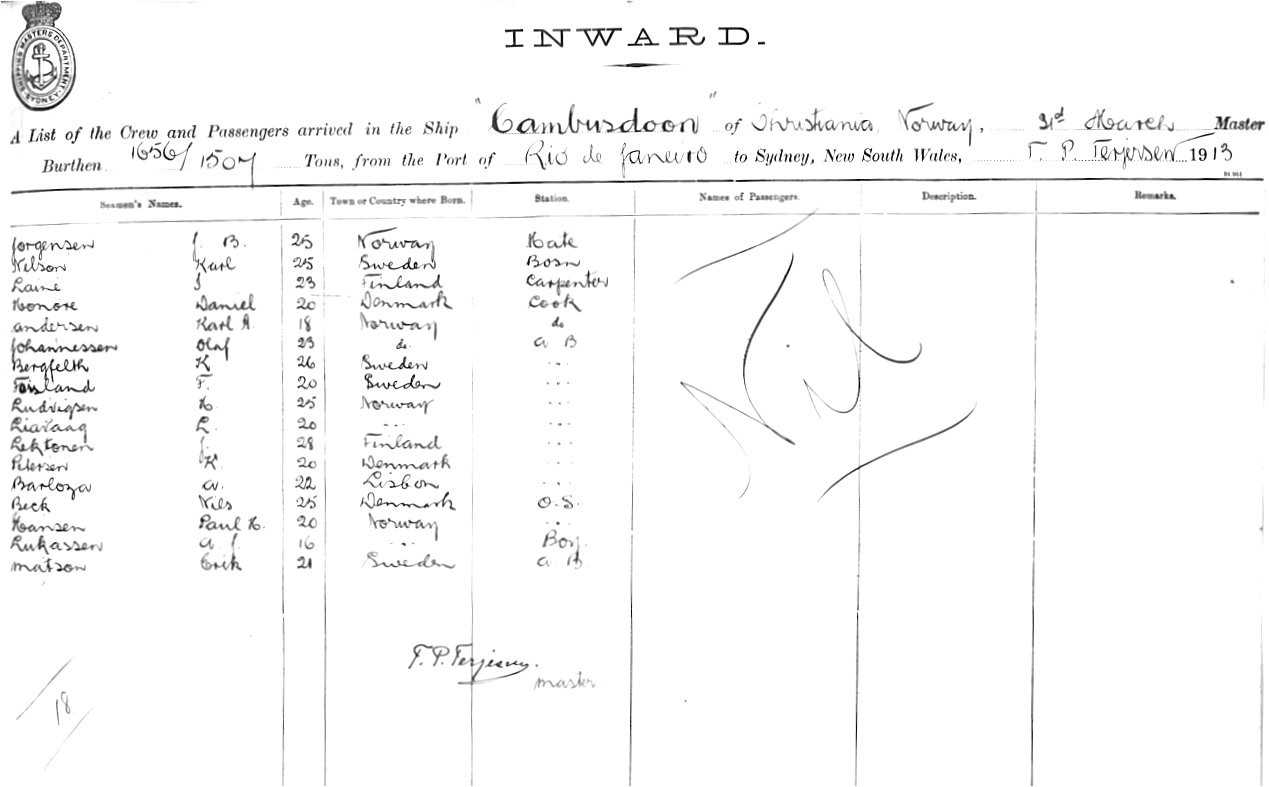 SHIPPING MASTERS DEPARTMENT SYDNEY
INWARD.
A List of the Crew and Passengers arrived in the Ship "Cambusdoon" of Christiania, Norway, 31st March Master
Burthen 1656/1507 Tons, from the Port of Rio de Janeiro to Sydney, New South Wales, T. P. Terjersen 1913
Seamen's Names. Age. Town or Country where Born. Station. Names of Passengers. Description. Remarks.
Jorgensen J. B. 25 Norway Mate
Nilson Karl 25 Sweden Bosn
Laine J 23 Finland Carpenter
Honore Daniel 20 Denmark Cook
Andersen Karl A. 18 Norway do
Johannessen Olaf 23 do. A B
Bergfelth K 26 Sweden ...
F. 20 Sweden ...
Ludvigsen H. 25 Norway ...
Liavaag L. 20 ... ...
Lektonen J. 28 Finland ...
Petersen K. 20 Denmark ...
Barloza A. 22 Lisbon ...
Beck Nils 25 Denmark O.S.
Hansen Paul H. 20 Norway ...
Lukassen A J. 16 ... Boy.
Matson Erik 21 Sweden A. B.
Nil
T. P. Terjesen.
master
18